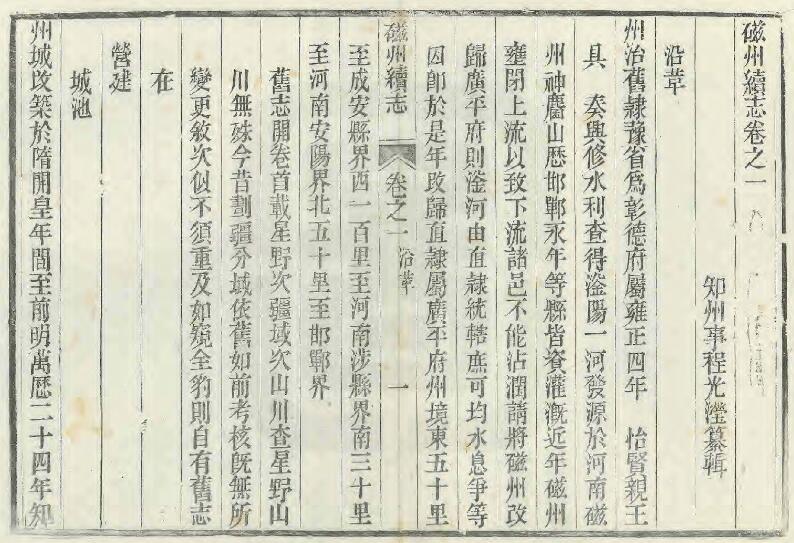 磁州續志卷之一
知州事程光瀅纂輯
沿革
州治舊隸豫省爲彰德府屬雍正四年 怡賢親王
具 奏興修水利查得滏陽一河發源於河南磁
州神麕山歷邯鄲永年等縣皆資灌漑近年磁州
壅閉上流以致下流諸邑不能沾潤請將磁州改
歸廣平府則滏河由直隸統轄庶可均水息爭等
因卽於是年改歸直隸屬廣平府州境東五十里
磁州續志 卷之一 沿革 一
至成安縣界西一百里至河南涉縣界南三十里
至河南安陽界北五十里至邯鄲界
舊志開卷首載星野次疆域次山川查星野山
川無殊今昔劃疆分域依舊如前考核旣無所
變更敘次似不須重及如窺全豹則自有舊志
在
營建
城池
州城改築於隋開皇年間至前明萬歷二十四年知